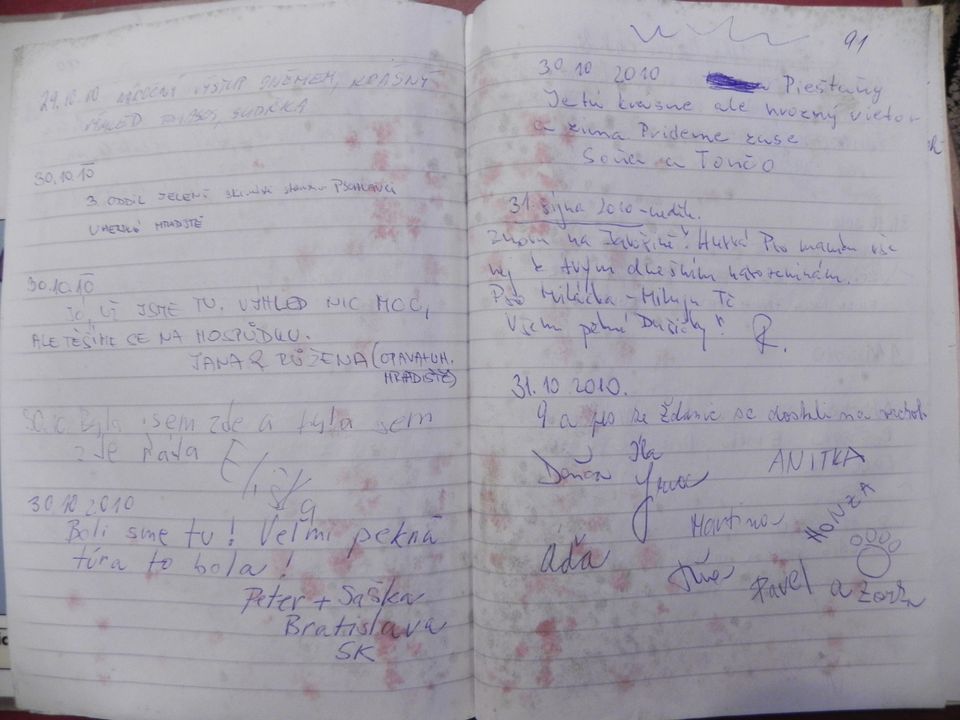 29.10.10 NÁROČNÝ VÝSTUP SNEHEM, KRÁSNÝ
30.10.10
3. ODDÍL JELENI
UHERSKÉ HRADIŠTĚ
30.10.10
JÓ, UŽ JSME TU. VÝHLED NIC MOC,
ALE TĚŠÍME SE NA HOSPŮDKU.
JANA & RŮŽENA (OPAVA + UH.
HRADIŠTĚ)
30.10. Byla jsem zde a byla jsem
zde ráda
Eliška
30 10 2010
Boli sme tu! Veľmi pekná
túra to bola!
Peter + Saška
Bratislava
SK
91
30.10 2010 Piešťany
Je tu krasne ale hrozny vietor
a zima Prideme zase
Soňa a Tončo
31. října 2010 - neděle.
Znovu na Javořině! Hurá! Pro mamku vše
nej k tvým dnešním narozeninám.
Pro Miláčka - Miluju Tě
Všem pěkné Dušičky! R.
31.10 2010.
9 a pes ze Ždanic se dostali na vrchol
Dáša
ANITKA
Martina
HONZA
Aďa
Pavel a